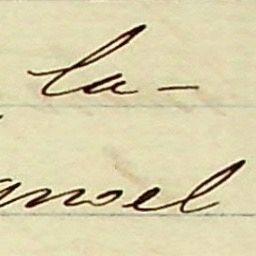 la-
anoel